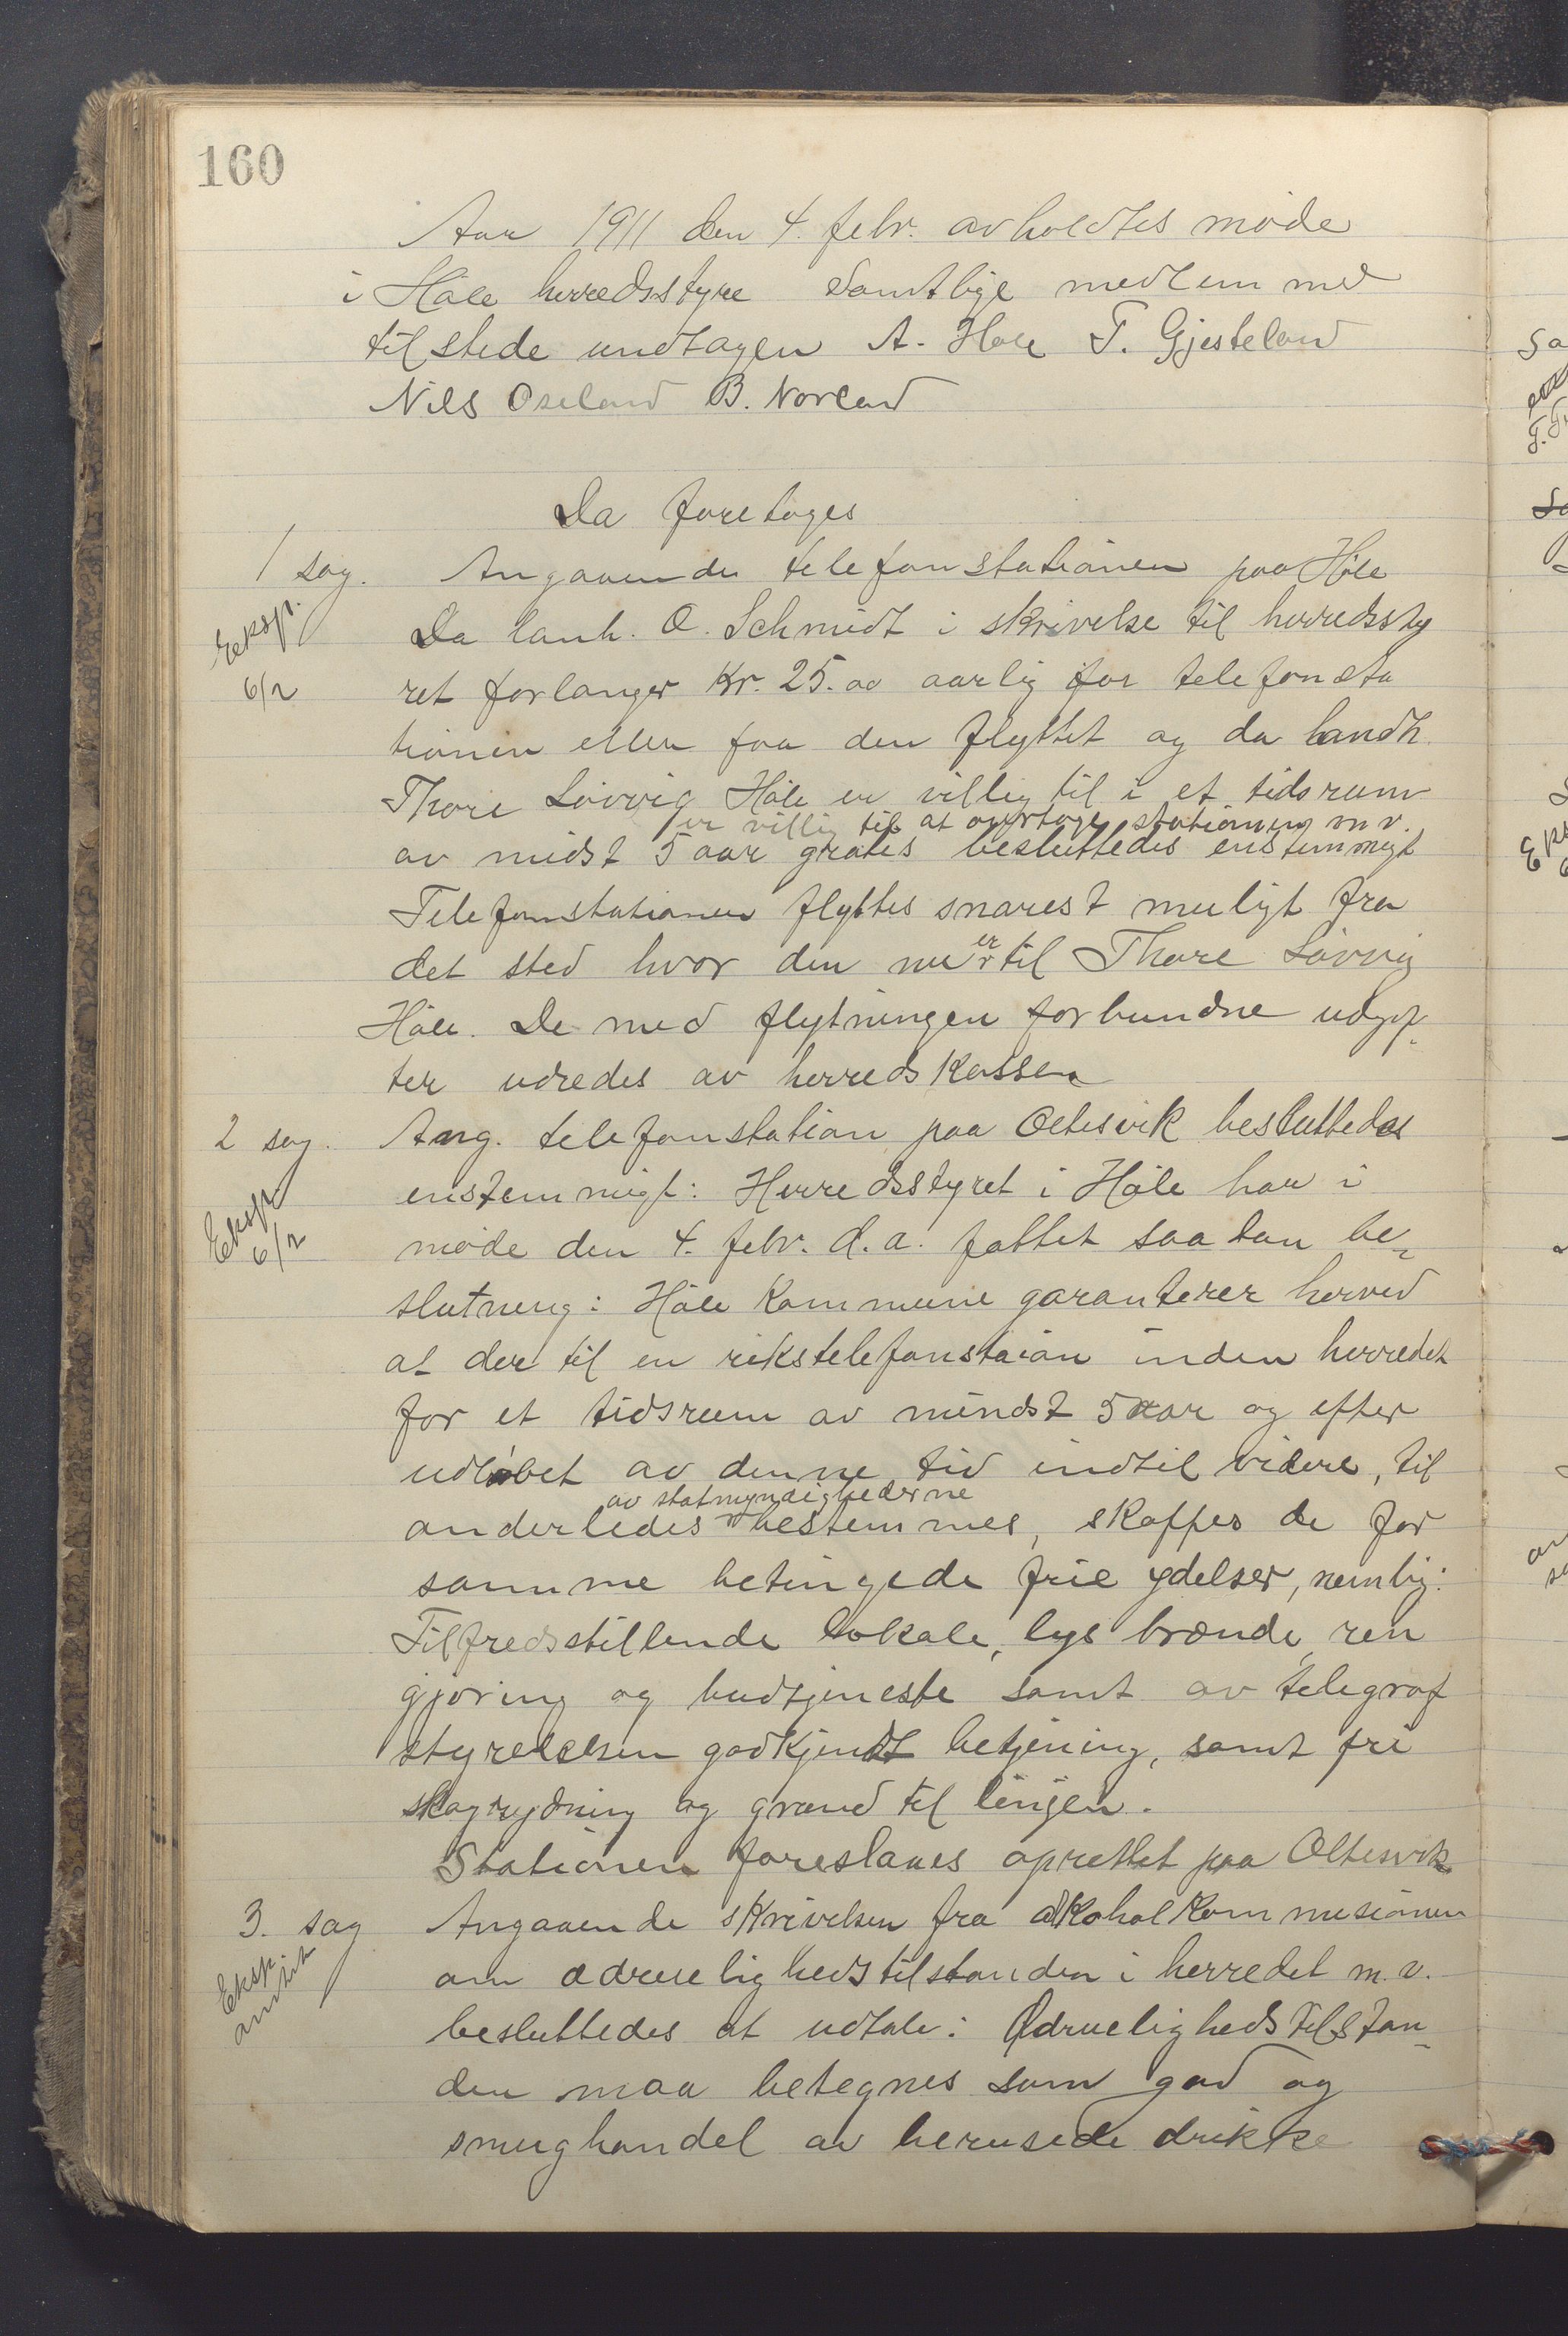 160
Aar 1911 den 4. febr. avholdtes møde
i Høle herredsstyre Samtlige medlemmer
tilstede undtagen A. Hole T. Gjesteland
Nils Oseland B. Norland
Da foretoges
1 sag. Angaaende telefonstationen paa Høle
Eksp. 6/2
Da lanh. O. Schmidt i skrivelse til herredssty
ret forlanger Kr. 25.00 aarlig for telefonsta
tionen eller faa den flyttet og da landh.
Thore Løvvig Høle er villig til i et tidsrum
er villig til at overtage stationing m v.
av midst 5 aar gratis besluttedes enstemmigt
Telefonstationen flyttes snarest muligt fra
det sted hvor den nu er til Thore Løvvig
Høle. De med flytningen forbundne udgif-
ter udredes av herredskassen
2 sag. Ang. telefonstation paa Oltesvik besluttedes
Eksp. 6/2
enstemmigt: Herredsstyret i Høle har i
møde den 4. febr. d.a. fattet saadan be-
slutning: Høle Kommune garanterer herved
at der til en rikstelefonstaion inden herredet
for et tidsrum av mindst 5 aar og efter
udløbet av denne tid indtil videre, til
av statmyndighederne
anderledes bestemmes, skaffes de for
samme betingede frie ydelser, nemlig:
Tilfredsstillende lokale, lys brænde, ren
gjøring og budtjeneste samt av telegraf
styrelelsen godkjendt betjening, samt fri
skogrydning og grund til linjen.
Stationen foreslaaes oprettet paa Oltesvik
3. sag Angaaende skrivelsen fra alkoholkommusionen
Eksp.
om ædruelighedstilstanden i herredet m.v.
besluttedes at udtale: Ædruelighedstilstan-
den maa betegnes som god og
smughandel av berusede drikke